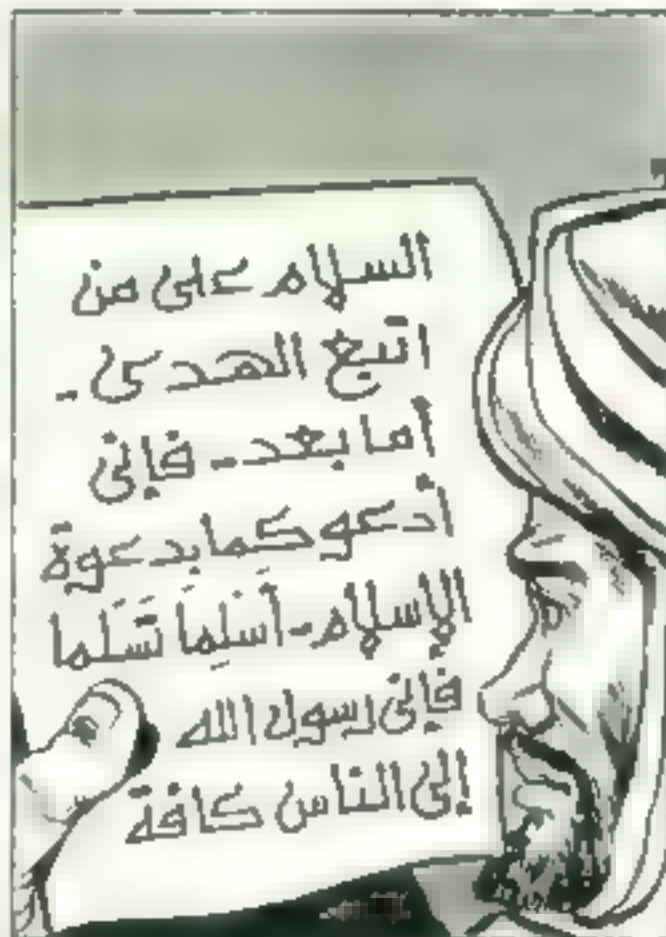 السلام على من
اتبع الهدى -
أما بعد - فإنى
أدعوكما بدعوة
الإسلام - أَسْلِمَا تَسْلَما
فإنى رسول الله
إلى الناس كافة